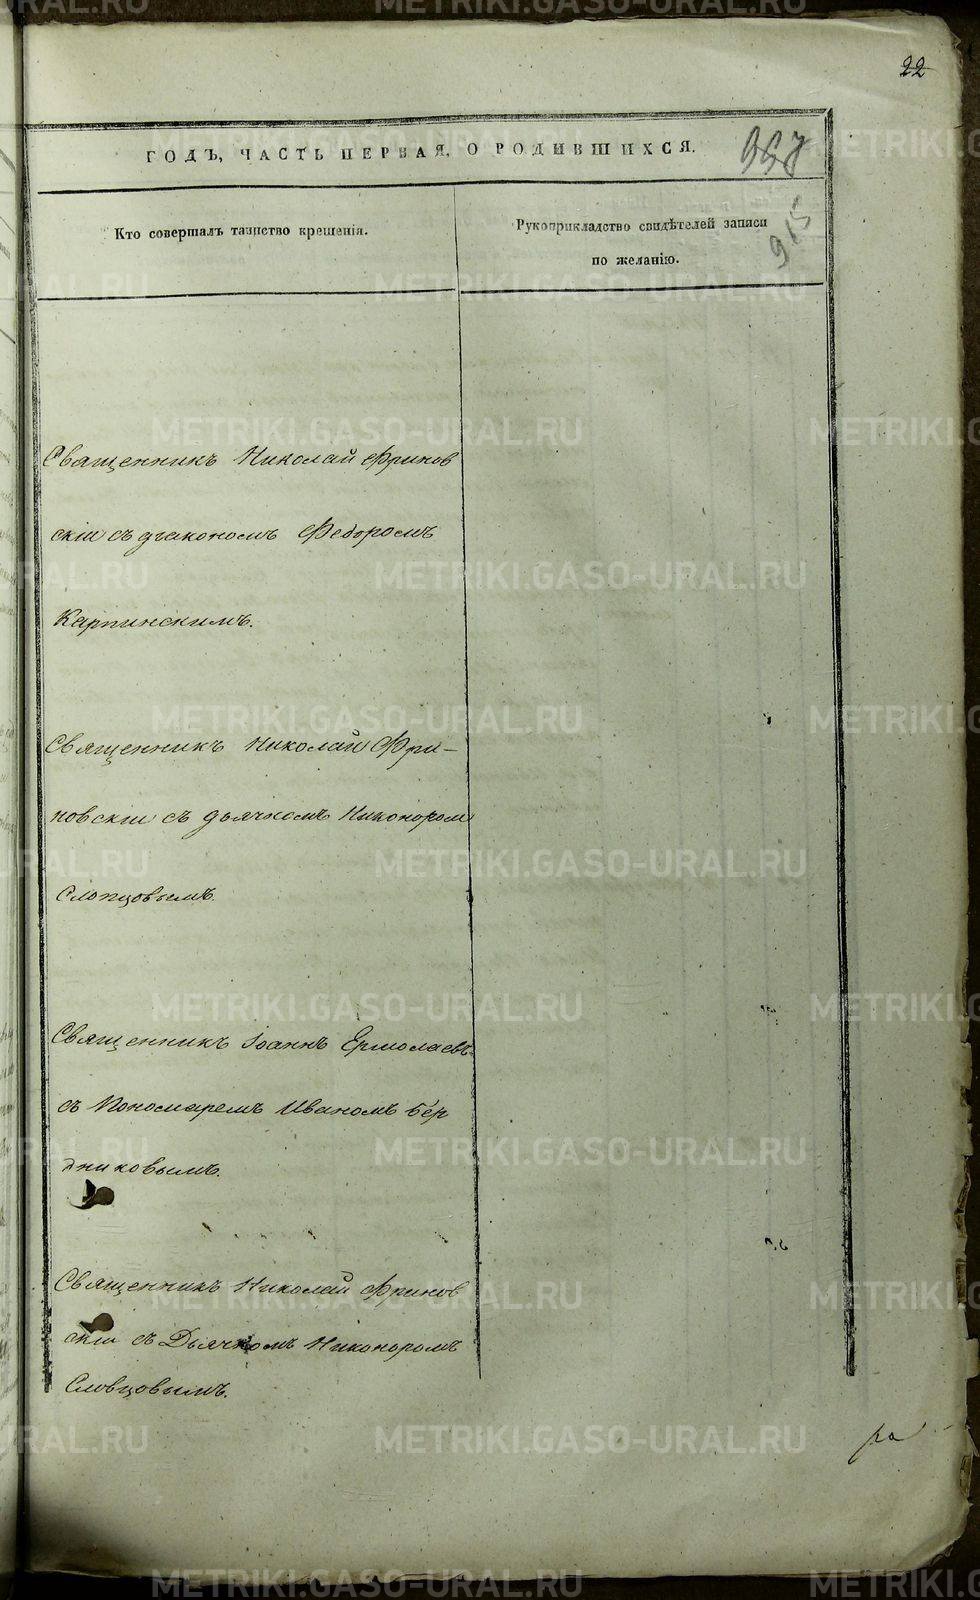 22
ГОДЪ, ЧАСТЬ ПЕРВАЯ, О РОДИВШИХСЯ.
915
Кто совершалъ таинство крещенія.
Рукоприкладство свидѣтелей записи
по желанію.
Священникъ Николай Фринов
скій съ діакономъ Федоромъ
Карпинскимъ.
Священникъ Николай Фри–
новскій съ дьячкомъ Никоноромъ
Словцовымъ.
Священникъ Іоаннъ Ермолаевъ
съ Пономаремъ Иваномъ Бер
дниковымъ.
Священникъ Николай Фринов
скій съ Дьячкомъ Никоноромъ
Словцовымъ.
METRIKI.GASO-URAL.RU